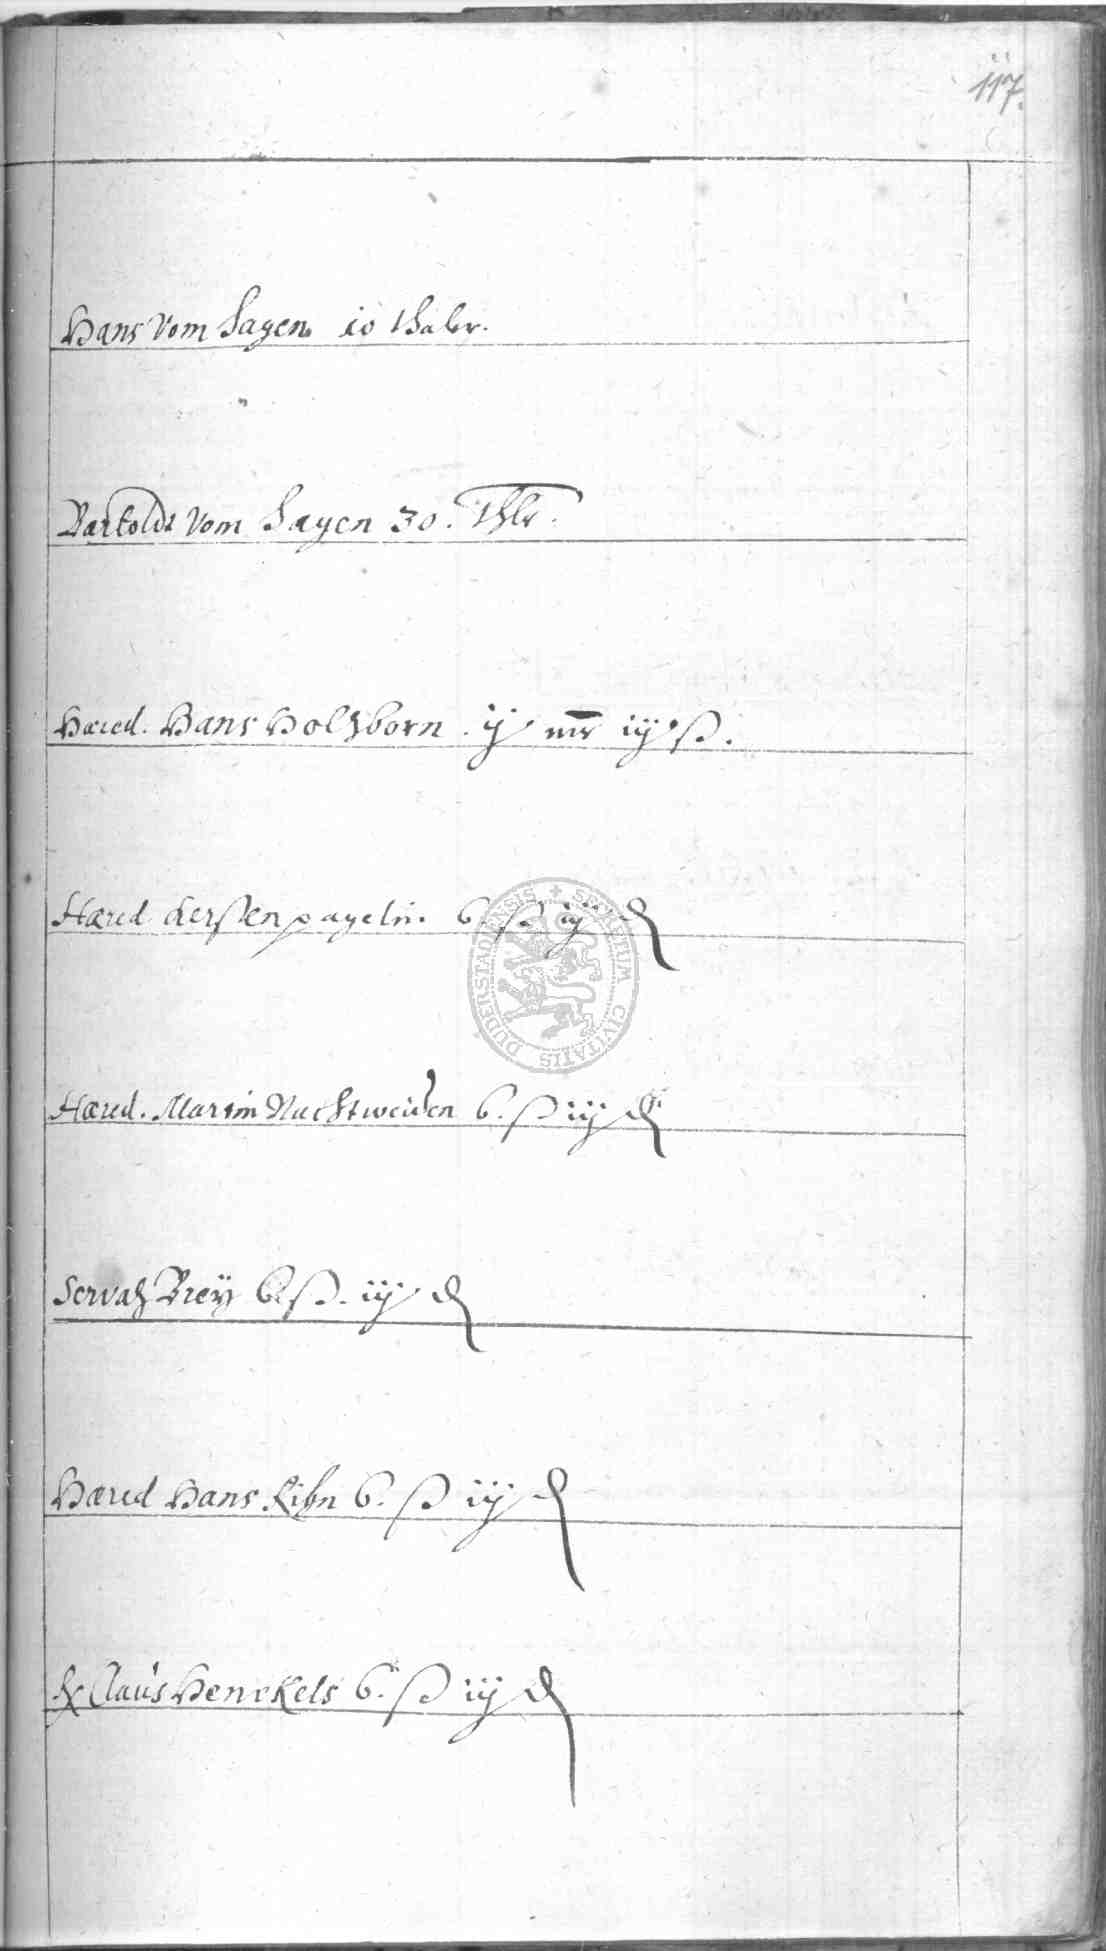 117.
Hans Vom Hagen 10 thaler.
Bartoldt Vom Hagen 30. thlr.
Hæred. Hans Holtzborn. ij mr iij ß.
Hæred. Kersten pageln. 6. ß iij ₰
Hæred. Martin Nachtweiden 6. ß iij ₰
Servatz Breÿ 6. ß. iij ₰
Hæred Hans 6. ß iij ₰
Claus Henckels 6. ß iij ₰
SECRETUM CIVITATIS DUDERSTADIENSIS